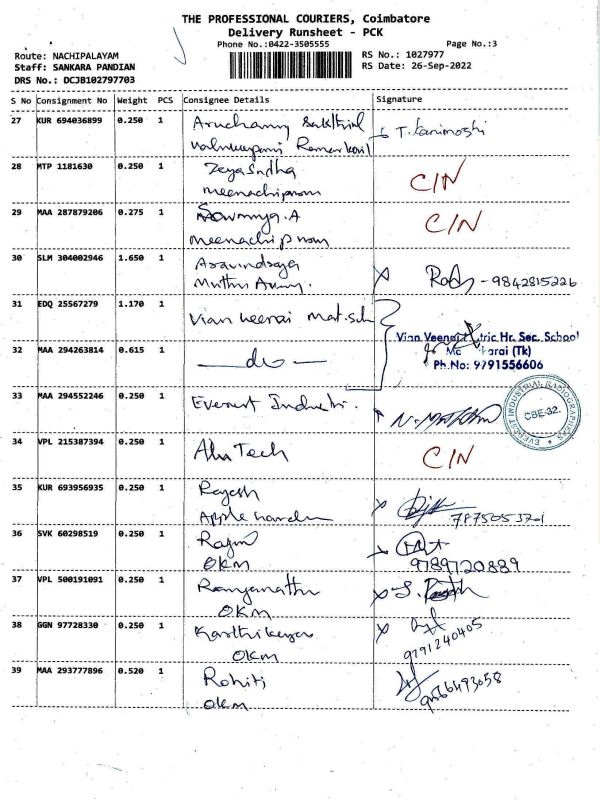 THE PROFESSIONAL COURIERS, Coimbatore
Delivery Runsheet - PCK
Phone No.:0422-3505555 Page No.:3
Route: NACHIPALAYAM RS No.: 1027977
Staff: SANKARA PANDIAN RS Date: 26-Sep-2022
DRS No.: DCJB102797703
S No Consignment No Weight PCS Consignee Details Signature
27 KUR 694036899 0.250 1
T. Kanimoshi
28 MTP 1181630 0.250 1
meenachipnam C/N
29 MAA 287879206 0.275 1 Sowmya. A C/N
meenachipnam
30 SLM 304002946 1.650 1 Aravindraja
Muthu - 9842815226
31 EDQ 25567279 1.170 1 Vian Veenai Mat. Sch
Vian Veenai tric Hr. Sec. School
32 MAA 294263814 0.615 1 — do — (Tk)
Ph.No: 9791556606
33 MAA 294552246 0.250 1 Everest
EVEREST INDUSTRIAL RADIOGRAPHERS CBE-32.
34 VPL 215387394 0.250 1 Alu Tech C/N
35 KUR 693956935 0.250 1 Rajesh
Apple
36 SVK 60298519 0.250 1
OKM 9789720889
37 VPL 500191091 0.250 1 Ranganathan
OKM
38 GGN 97728330 0.250 1 Karthikeyan
OKM 9791240405
39 MAA 293777896 0.520 1 Rohiti
OKM